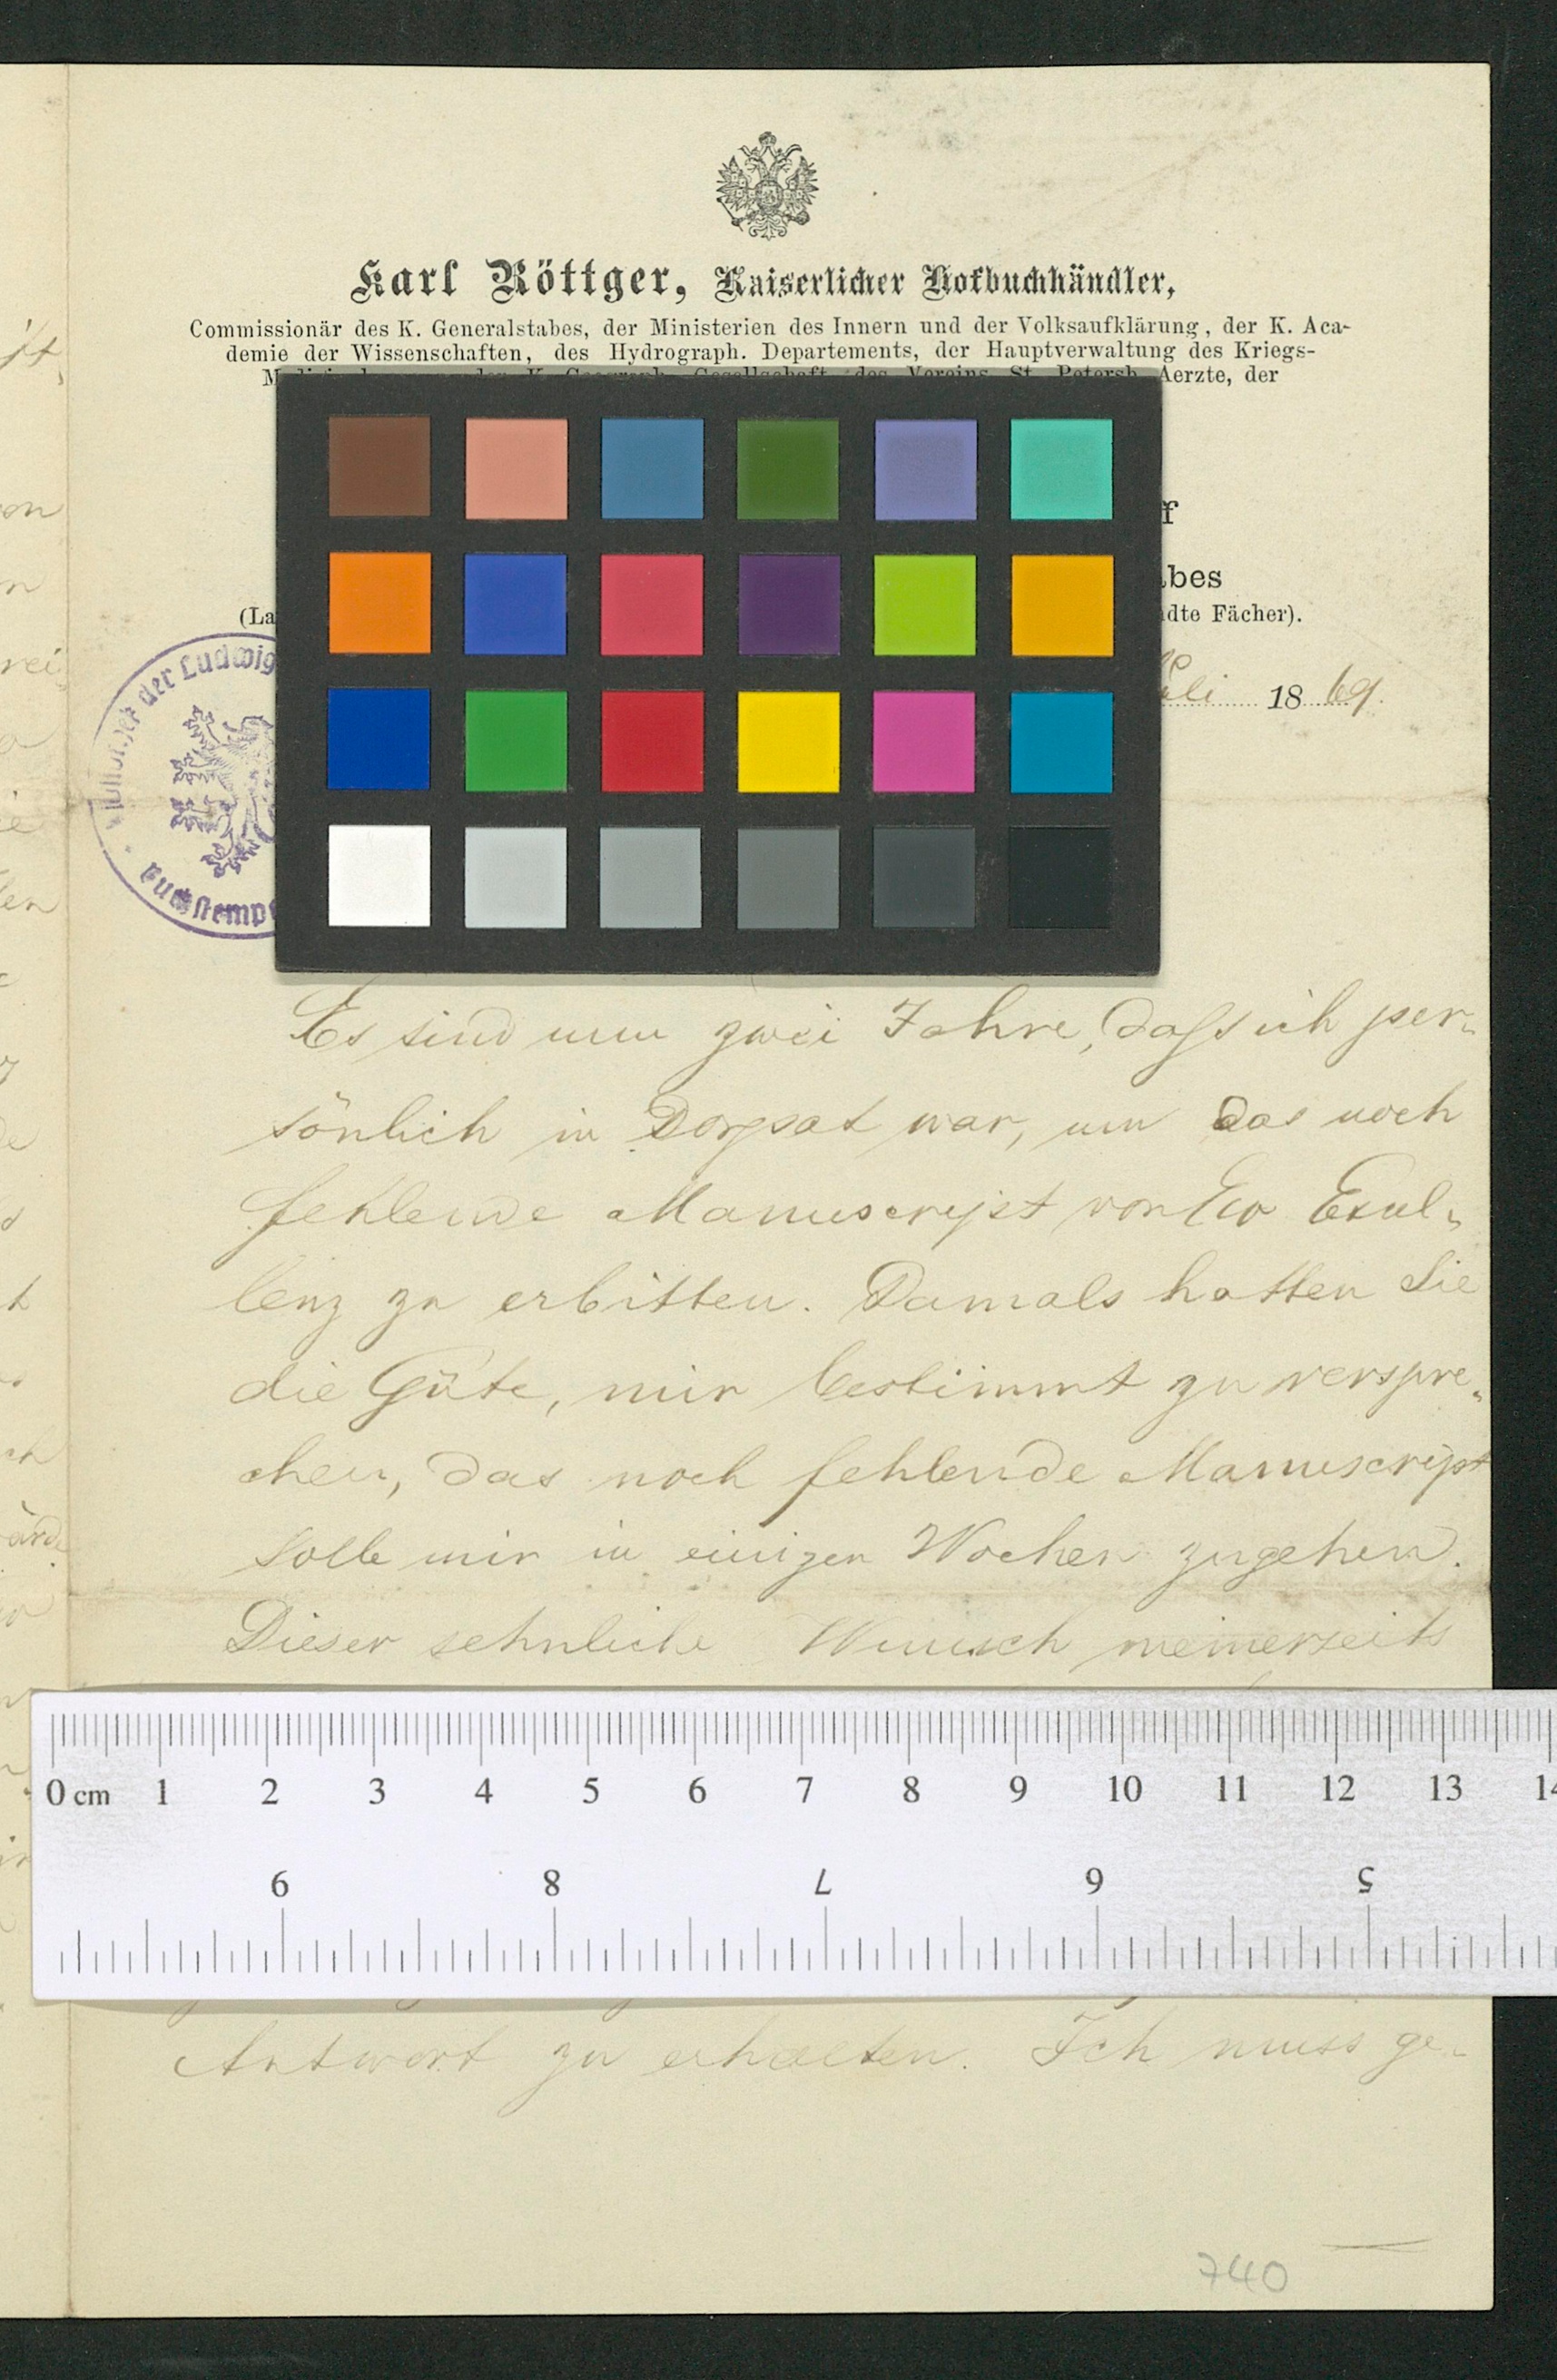 Karl Röttger, Kaiserlicher Hofbuchhändler,
Commissionär des K. Generalstabes, der Ministerien des Innern und der Volksaufklärung, der K. Aca-
demie der Wissenschaften, des Hydrograph. Departements, der Hauptverwaltung des Kriegs-
K. Geograph. Gesellschaft, des Vereins St. Petersb. Aerzte, der
(La
dte Fächer).
der Ludwig
18 69.
Es sind nun zwei Jahre, dass ich per-
sönlich in Dorpat war, um das noch
fehlende Manuscript von Ew Excel-
lenz zu erbitten. Damals hatten Sie
die Güte, mir bestimmt zu verspre-
chen, das noch fehlende Manuscript
solle mir in einigen Wochen zugehen.
Dieser sehnliche Wunsch meinerseits
0 cm 1 2 3 4 5 6 7 8 9 10 11 12 13 14
9 8 7 6 5
Antwort zu erhalten. Ich muss ge-
740